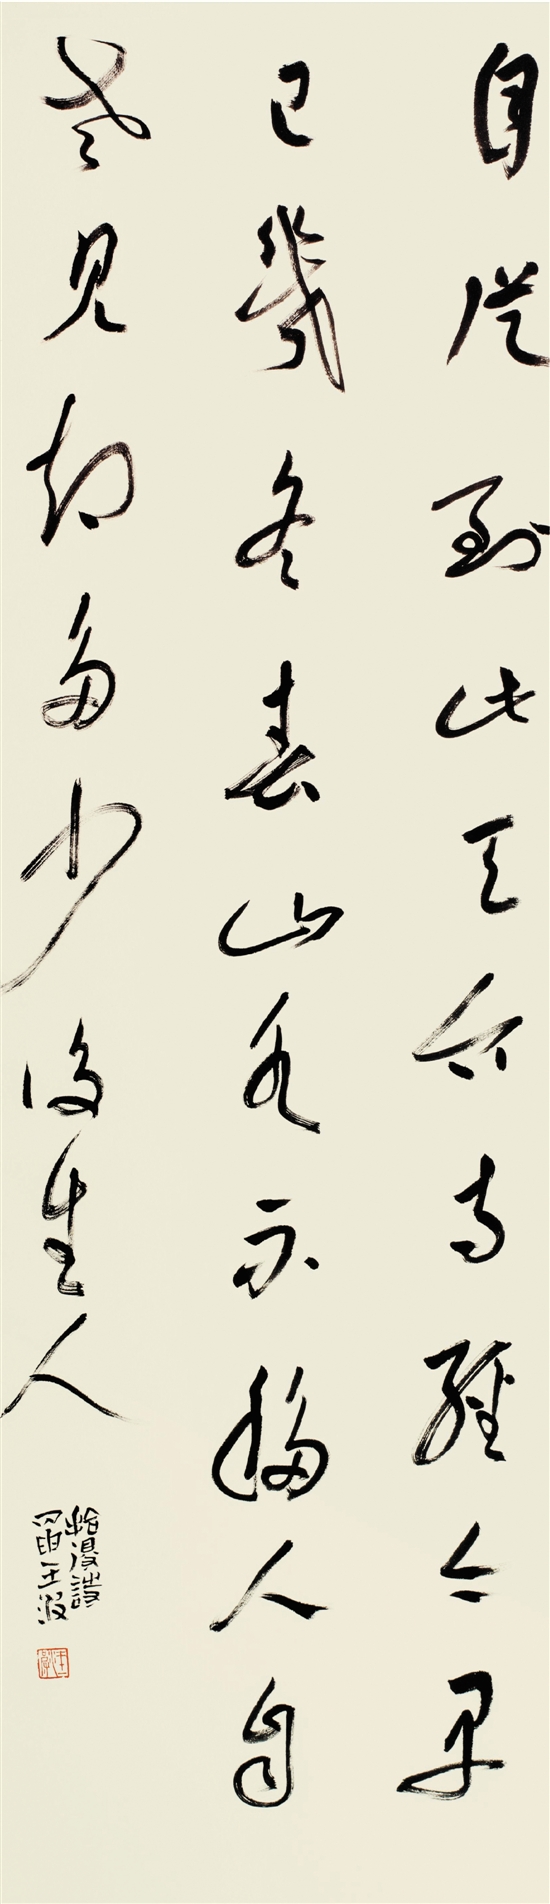 自從到此天台寺經今早
已幾冬春山水不移人自
老見却多少後生人
拾得詩